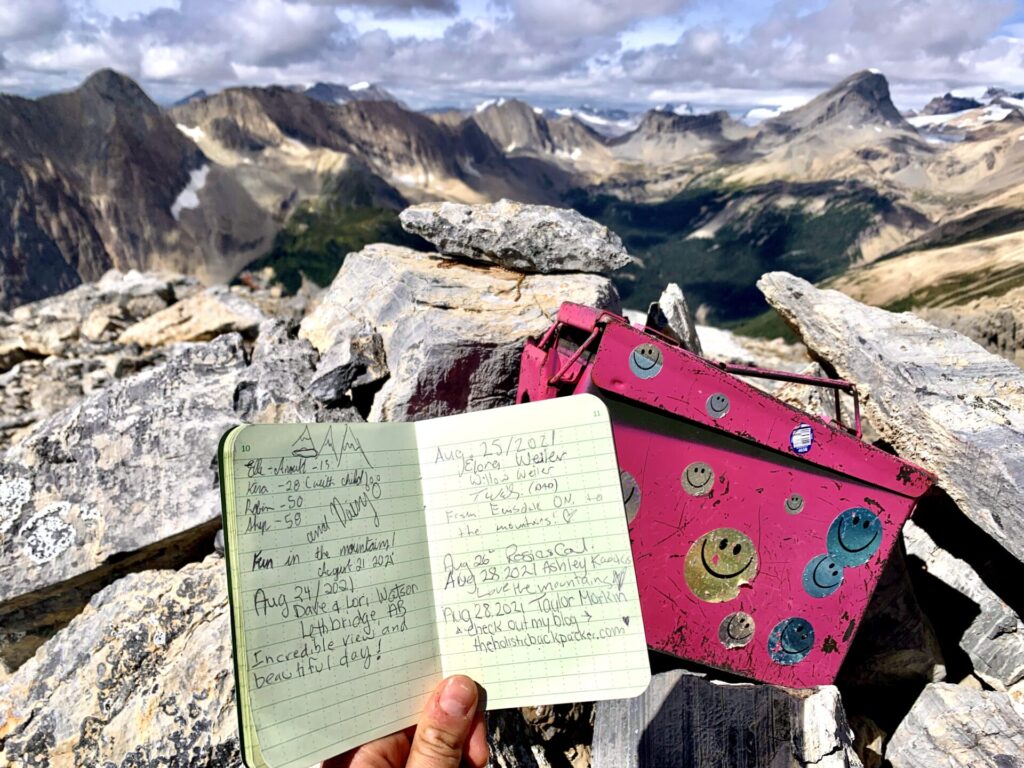 10
Kara - 28 (with child)
Robin - 50
- 58
and
Run in the mountains!
August 21 2021
Aug 24/2021
Dave & Lori Watson
Lethbridge, AB
Incredible view and
beautiful day!
11
Aug. 25/2021
Elora Weiler
Willow Weiler
(DAD)
From Emsdale ON. to
the mountains! ♡
Aug 26
Aug 28 2021 Ashley
Love the mountains
Aug 28. 2021 Taylor
check out my blog →
theholisticbackpacker.com